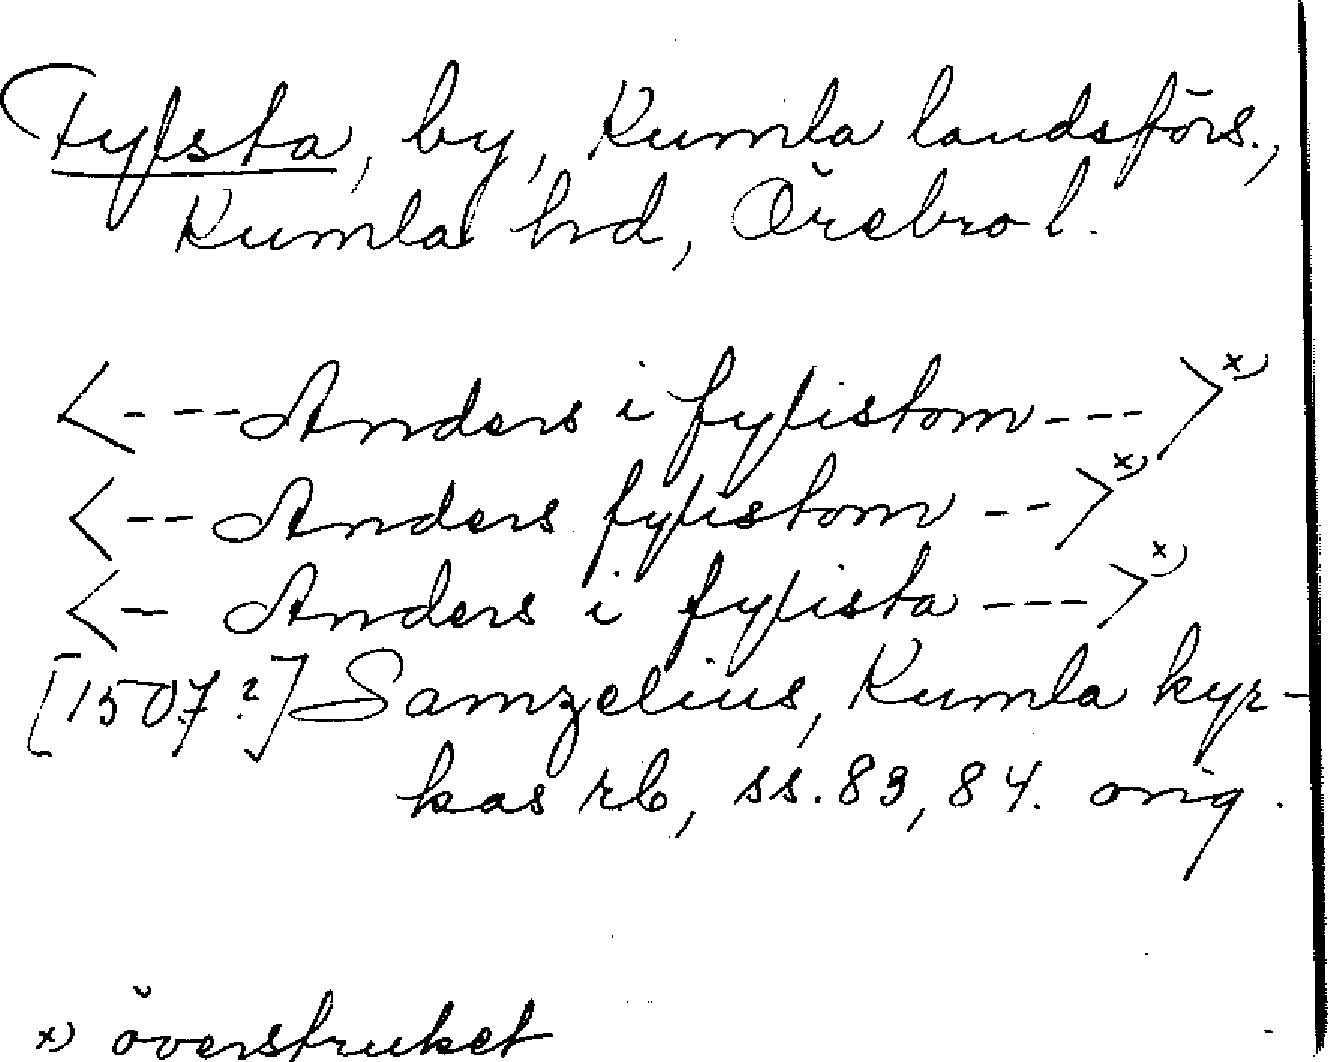 Fylsta, by, Kumla landsförs.,
Kumla hd, Örebro l.
<---Anders i fylistom--->x)
<--Anders fylistom-->x)
<- Anders i fylista--->x)
[1507?] Samzelius, Kumla kyr-
kas rb, ss. 83, 84. orig.
x) överstruket